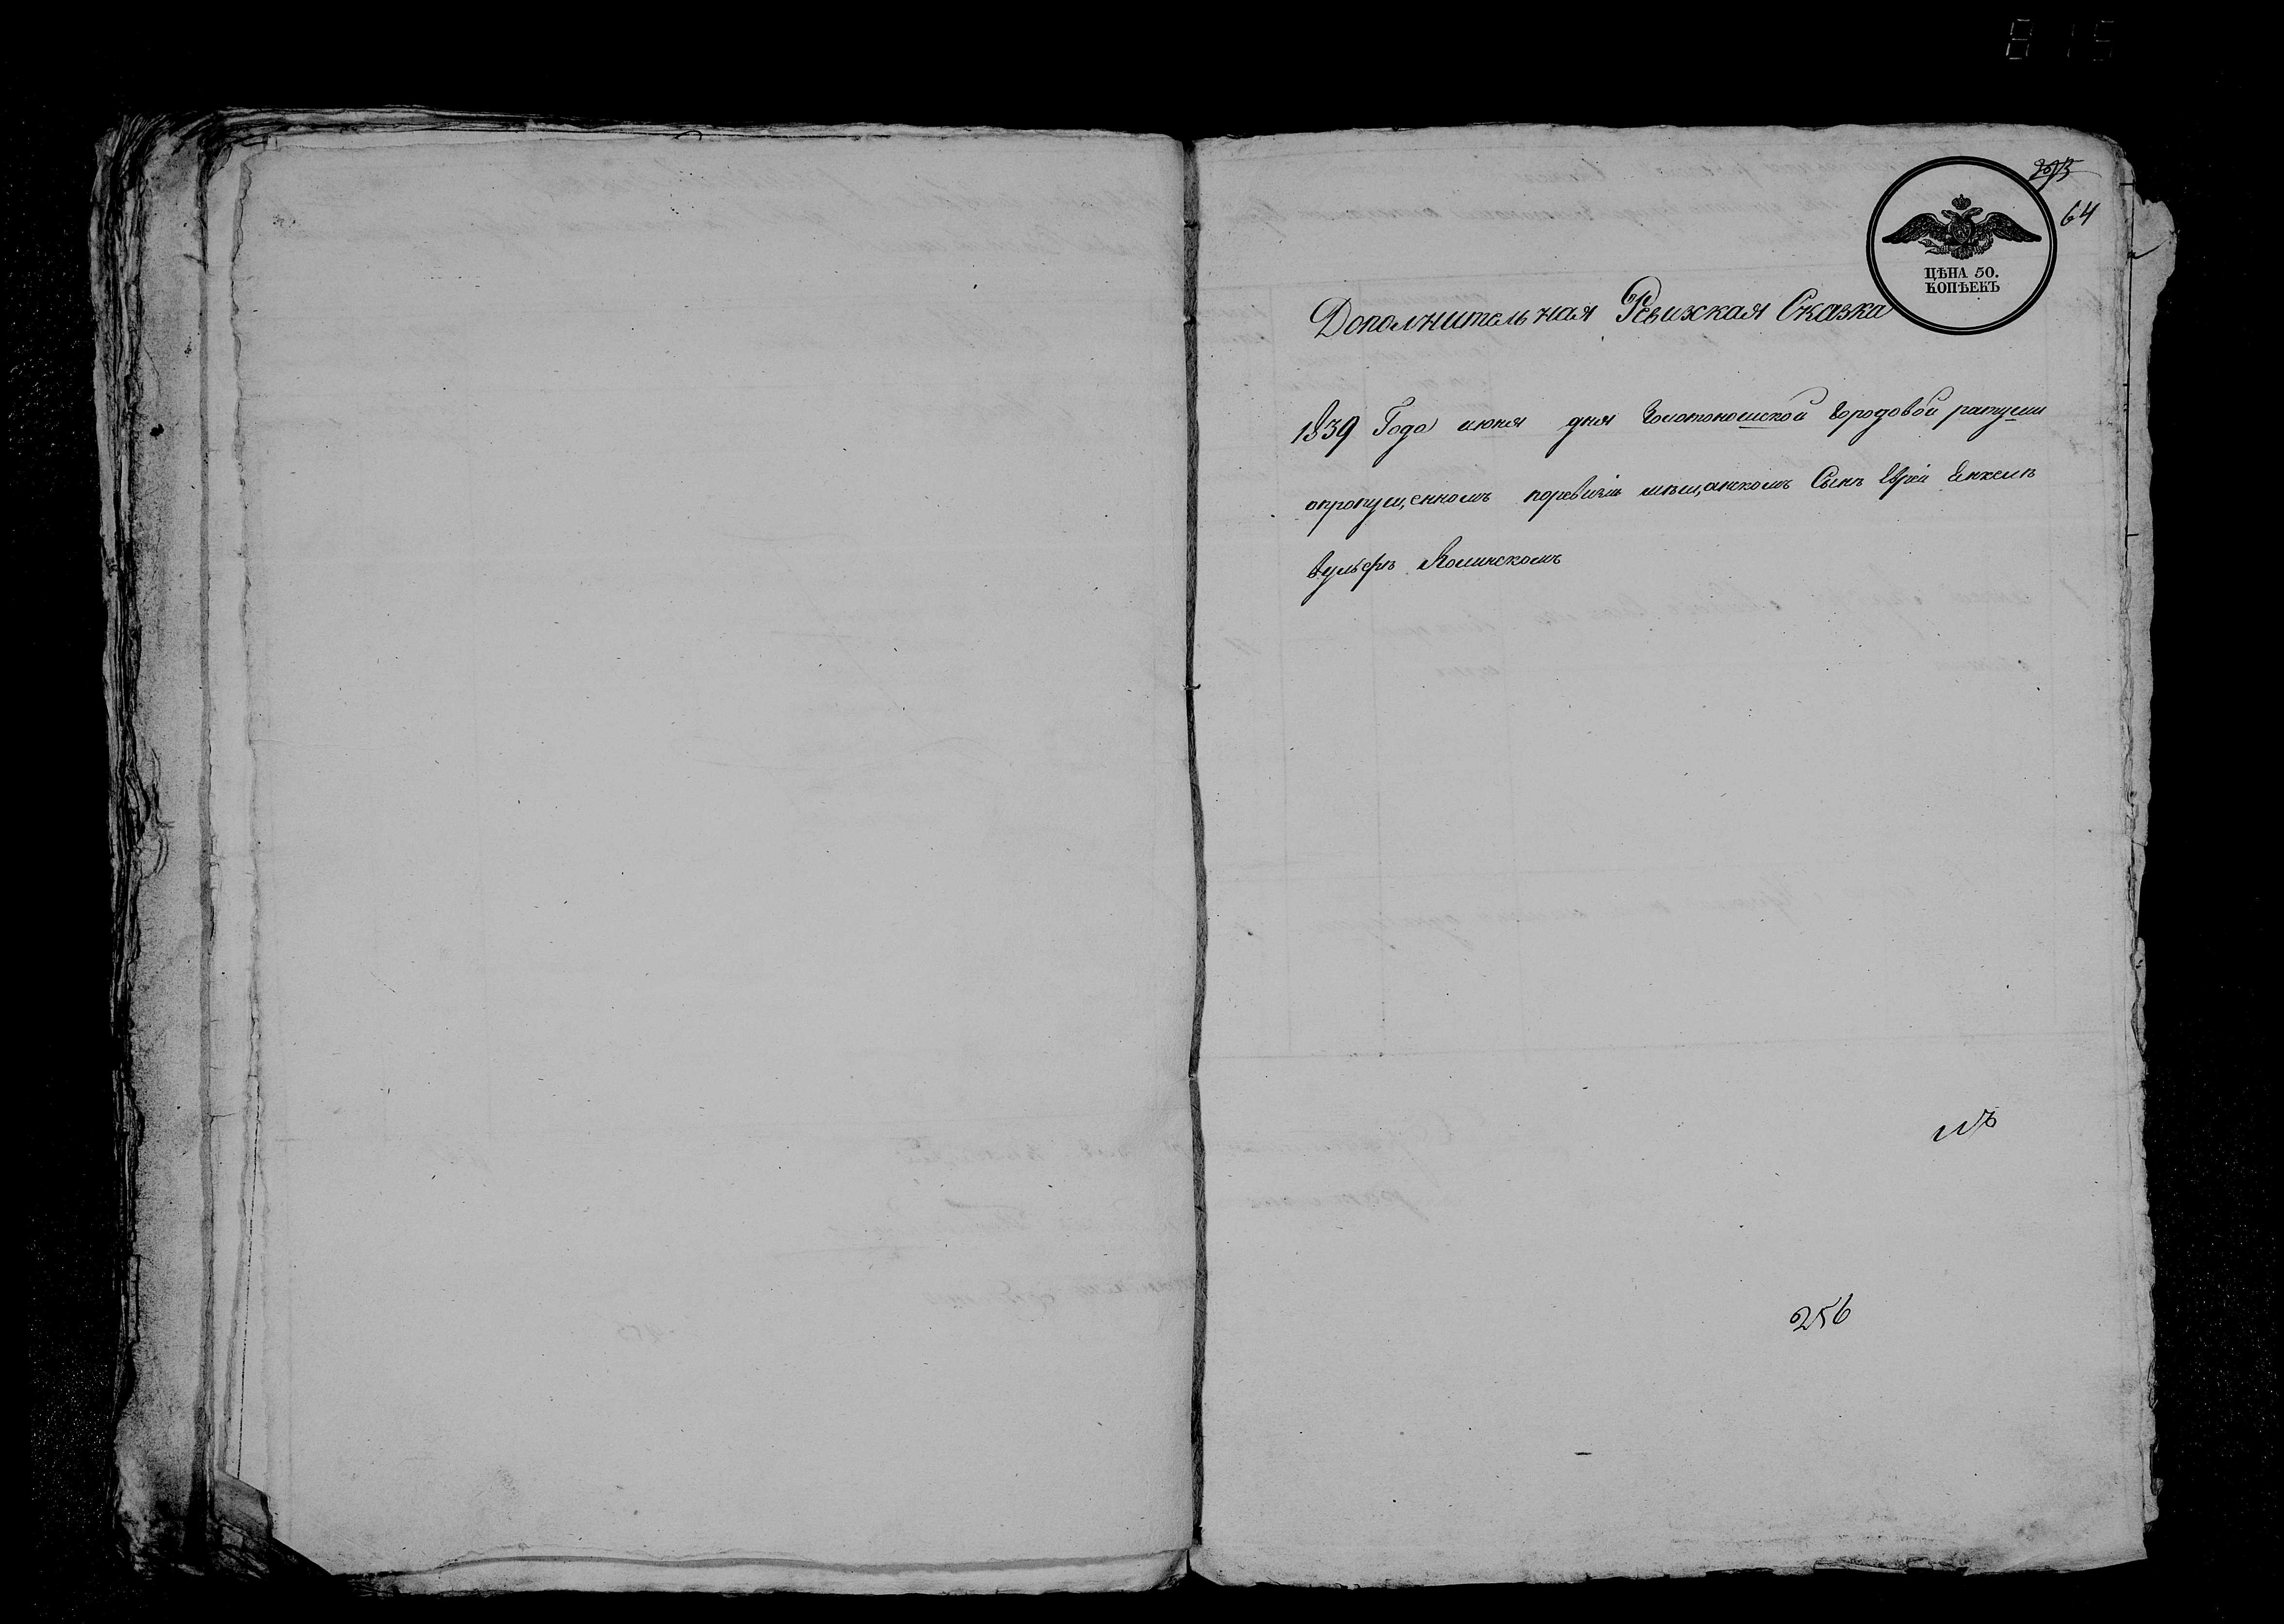 815
64
ЦѢНА 50.
КОПѢЕКЪ
Дополнительная Ревизская Сказка
1839 Года июня дня Золотоношской городовой ратуши
опропущенномъ поревизіи мещанскомъ Сынѣ Еврей Енкелѣ
Вульфѣ
256